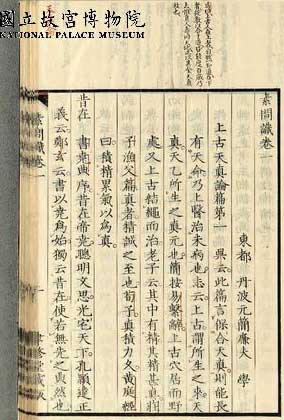 國立故宮博物院
NATIONAL PALACE MUSEUM
素問識卷一
東都 丹波元簡廉夫 學
上古天真論篇第一 吳云此篇言保合天真則能長
有天命乃上醫治未病也志云上古謂所生之來天
真天乙所生之真元也簡按易繫辭上古穴居而野
處又上古結繩而治老子云其中有精其精甚真莊
子漁父篇真者精誠之至也荀子真積力久黃庭經
曰積精累氣以為真
昔在 書堯典序昔在帝堯聰明文思光宅天下孔穎達正
義云鄭玄云書以堯為始獨云昔在使若無先之典然也
素問識卷一
一